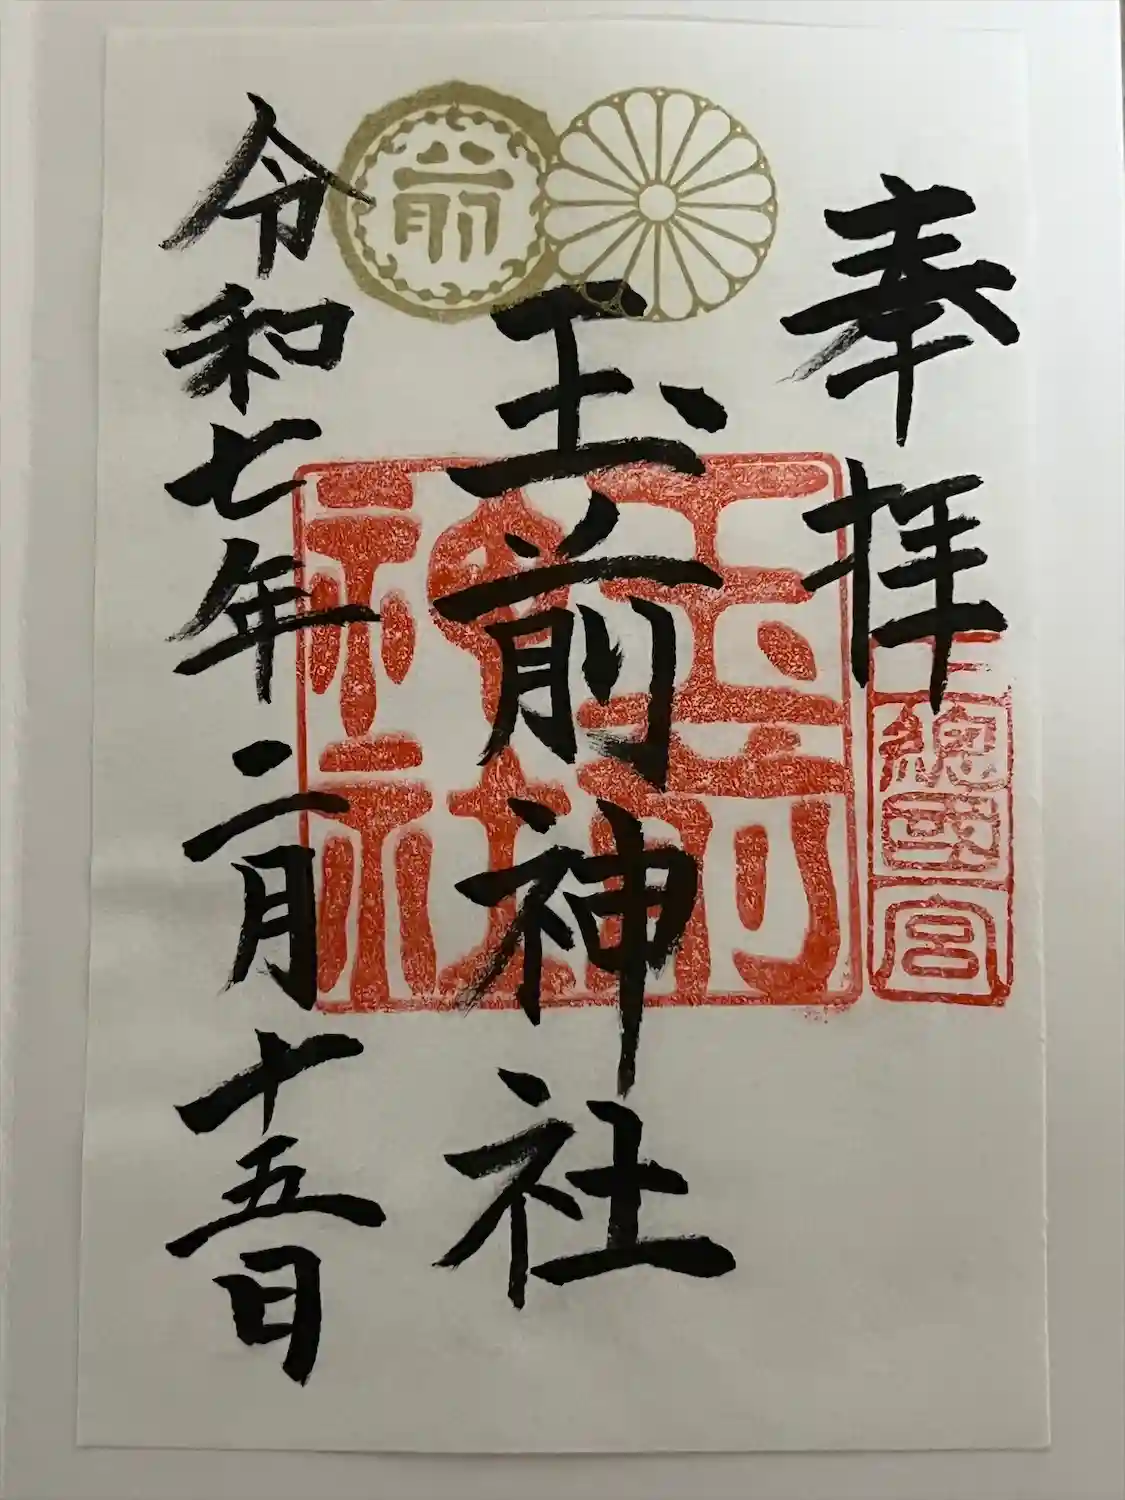 奉拝
上總國一宮
玉前神社
玉前神社
令和七年二月十五日
前